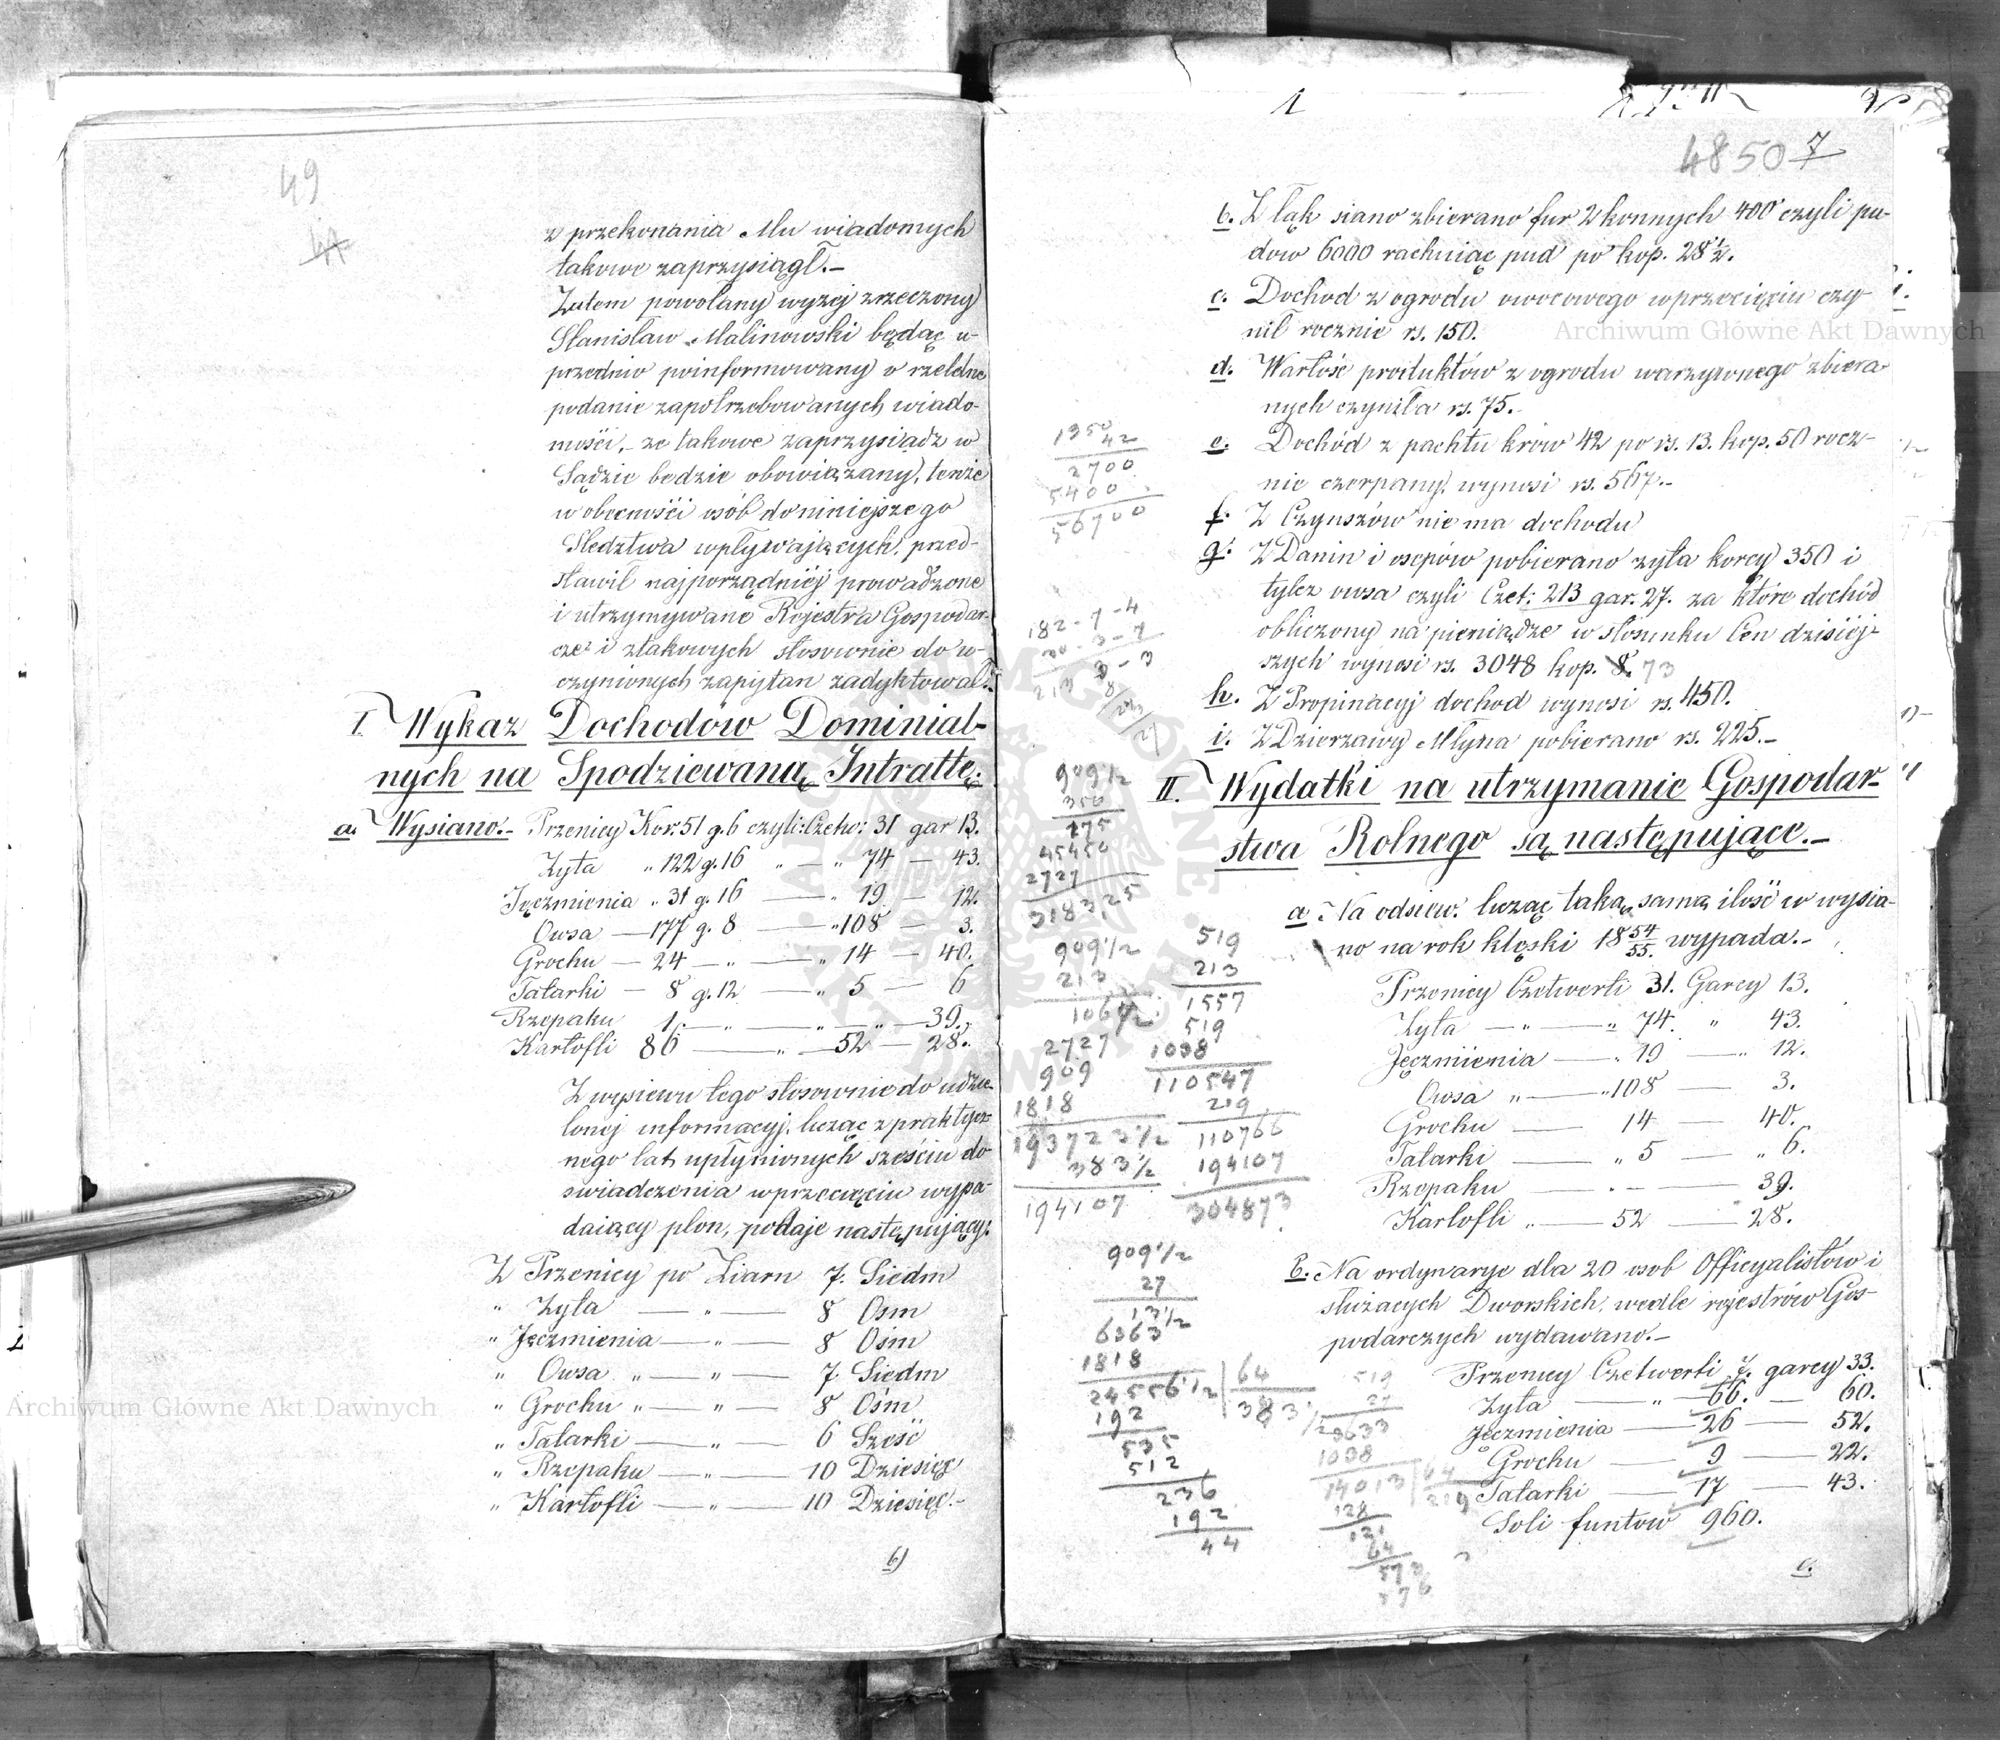 49
z przekonania Mu wiadomych
takowe zaprzysiągł.–
Zatem powołany wyżej zrzeczony
Stanisław Malinowski będąc u-
przednio poinformowany o rzetelne
podanie zapotrzebowanych wiado-
mości,– że takowe zaprzysiądz w
Sądzie będzie obowiązany, tenże
w obecności osób do niniejszego
Śledztwa wpływających, przed-
stawił najporządniej prowadzone
i utrzymywane Rejestra Gospodar-
cze i z takowych stosownie do u-
czynionych zapytań zadyktował:
I. Wykaz Dochodów Dominial-
nych na Spodziewaną Intratte:
a. Wysiano.– Pszenicy Kor: 51 g. 6 czyli: Czetw: 31 gar 13.
Żyta „ 122 g. 16 „ — „ 74 — 43.
Jęczmienia „ 31 g. 16 — „ 19 — 12.
Owsa — 177 g. 8 — „ 108 — 3.
Grochu — 24 — „ — „ 14 — 40.
Tatarki — 8 g. 12 — „ 5 — 6
Rzepaku 1. — „ — „ — „ — 39.
Kartofli 86 — „ — 52 — 28.
Z wysiewu tego stosownie do udzie-
lonej informacyj, licząc z praktycz-
nego lat upłynionych sześciu do
świadczenia w przecięciu wypa-
dający plon, podaje następujący:
Z Pszenicy po Ziarn 7. Siedm
„ Żyta — „ — 8 Ośm
„ Jęczmienia — „ — 8 Ośm
„ Owsa „ — „ — 7 Siedm
„ Grochu „ — „ — 8 Ośm
„ Tatarki — „ — 6 Sześć
„ Rzepaku — „ — 10 Dziesięć
„ Kartofli — „ — 10 Dziesięć.–
b)
4850 7
b. Z łąk siano zbierano fur 2 konnych 400 czyli pu-
dow 6000 rachując pud po kop. 28½.
c. Dochod z ogrodu owocowego w przecięciu czy-
nił rocznie rs. 150.
d. Wartość produktów z ogrodu warzywnego zbiera-
nych czyniła rs. 75.
e. Dochód z pachtu krów 42 po rs. 13. kop. 50 rocz-
nie czerpany, wynosi rs. 567.–
f. Z Czynszów nie ma dochodu
g. Z Danin i osepów pobierano żyta korcy 350 i
tyleż owsa czyli Czet: 213 gar. 27. za które dochód
obliczony na pieniądze w stosunku Cen dzisiej-
szych wynosi rs. 3048 kop. 73
h. Z Propinacyj dochod wynosi rs. 450.
i. Z Dzierzawy Młyna pobierano rs. 225.–
II. Wydatki na utrzymanie Gospodar-
stwa Rolnego są następujące.–
a Na odsiew: licząc taką samą ilość w wysia-
no na rok klęski 18 54/55. wypada.–
Pszenicy Czetwerti 31. Garcy 13.
Żyta — „ — „ 74. „ 43.
Jęczmienia — „ 19 — „ 12.
Owsa „ — „ 108 — 3.
Grochu — 14 — 40.
Tatarki — „ 5 — „ 6.
Rzepaku — „ — 39.
Kartofli „ — 52 — 28.
b. Na ordynarye dla 20 osob Officyalistów i
służących Dworskich, wedle rejestrów Gos-
podarczych wydawano.–
Pszenicy Czetwerti 7. garcy 33.
Żyta — „ 66. — 60.
Jęczmienia — 26 — 52.
Grochu — 9 — 22.
Tatarki — 17 — 43.
Soli funtow 960.
c.
1350
42
2700
5400
56700
182-7-4
30-3-7
909½
350
45450
2727
318325
909½
213
2727
909
1818
193723½
383½
194107
519
213
1557
519
1038
110547
219
110766
194107
304873
909½
27
13½
6363
1818
24556½ 64
192 383½
535
512
236
192
44
519
27
3633
1038
14013 64
128 219
121
64
573
576
Archiwum Główne Akt Dawnych
Archiwum Główne Akt Dawnych
ARCHIWUM GŁÓWNE AKT DAWNYCH